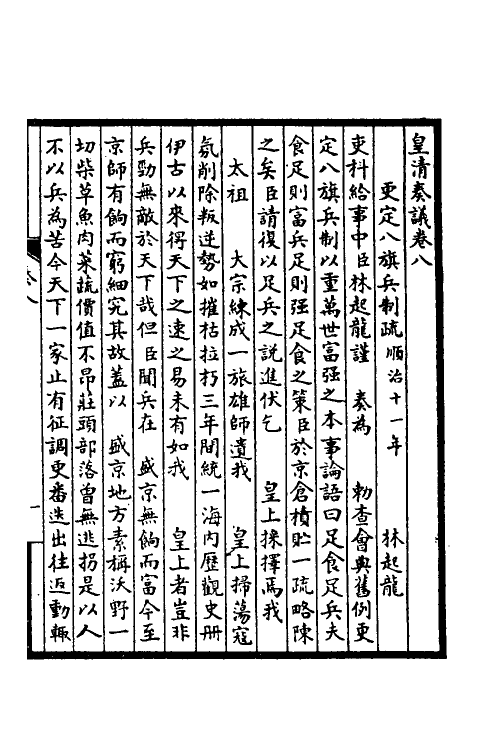 皇清奏議卷八
更定八旗兵制疏 順治十一年 林起龍
吏科給事中臣林起龍謹 奏為 勅查會典舊例更
定八旗兵制以重萬世富强之本事論語曰足食足兵夫
食足則富兵足則强足食之策臣於京倉積貯一疏略陳
之矣臣請復以足兵之説進伏乞 皇上採擇焉我
太祖 太宗練成一旅雄師遺我 皇上掃蕩寇
氛削除叛逆勢如摧枯拉朽三年間統一海内歷觀史册
伊古以來得天下之速之易未有如我 皇上者豈非
兵勁無敵於天下哉但臣聞兵在 盛京無餉而富今至
京師有餉而窮細究其故蓋以 盛京地方素稱沃野一
切柴草魚肉菜蔬價值不昂莊頭部落曾無逃拐是以人
不以兵為苦今天下一家止有征調更番迭出往返動輒